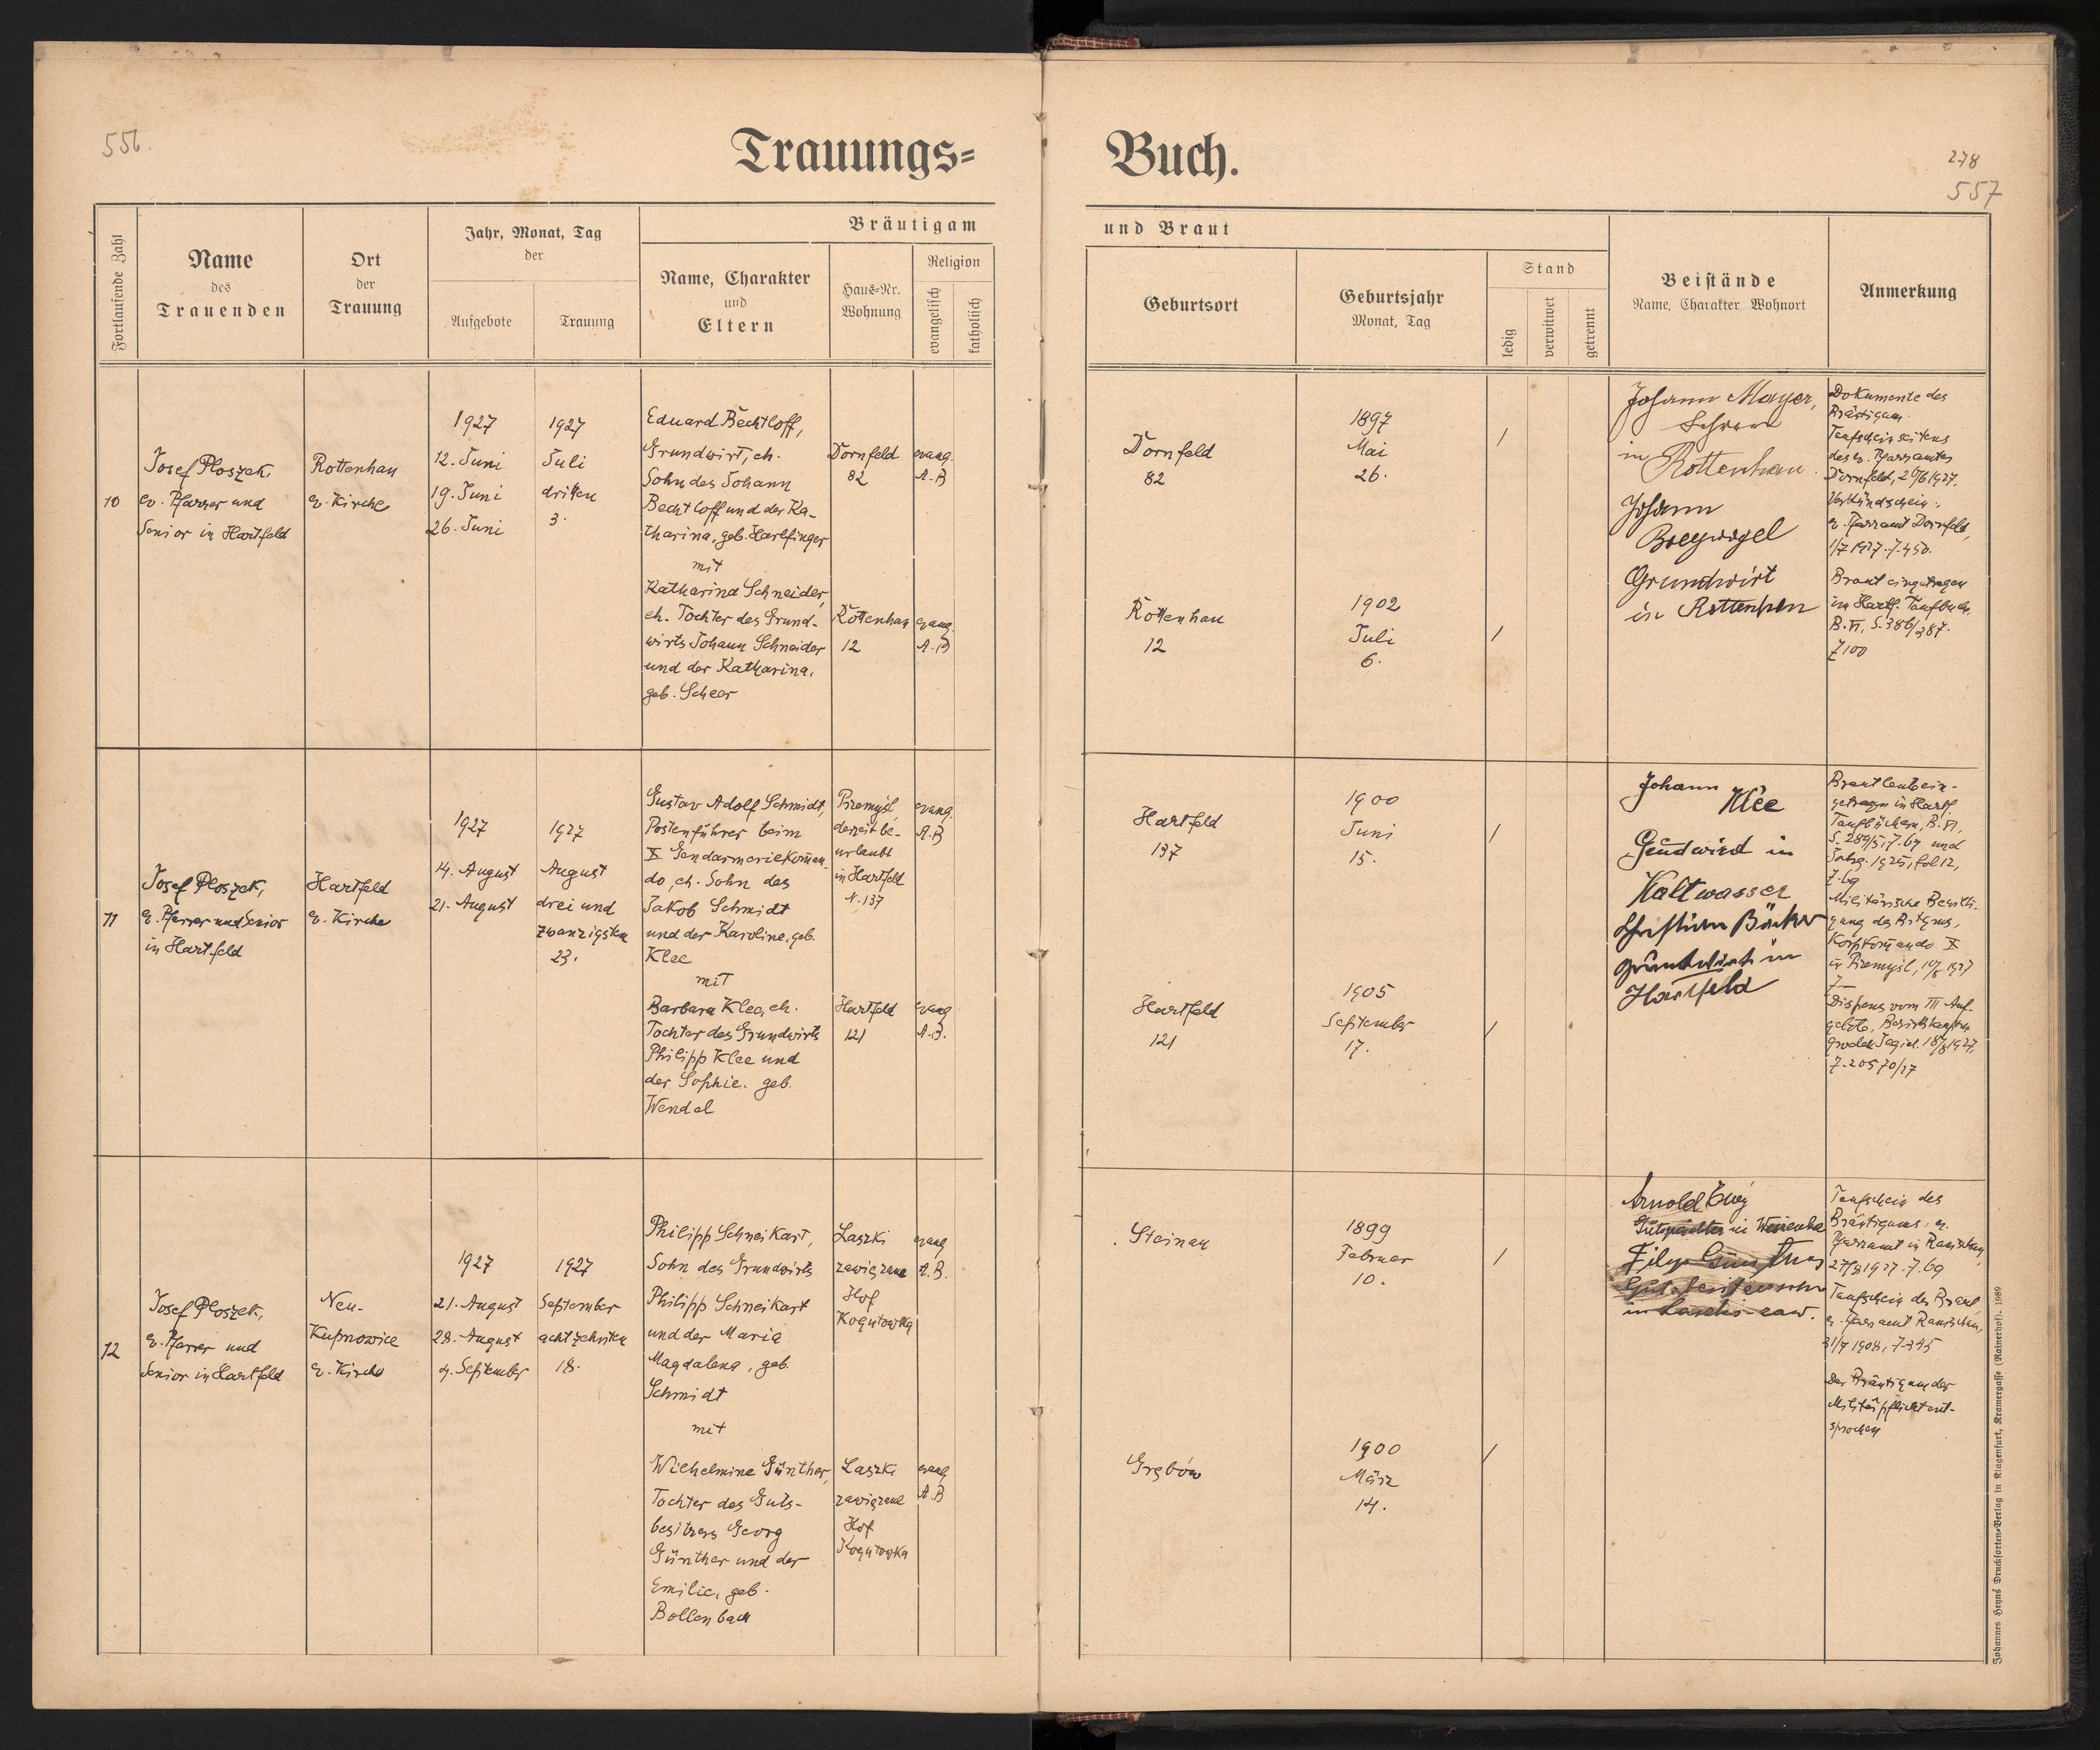 556.
Trauungs=
Buch.
278
557
Fortlaufende Zahl
Name
des
Trauenden
Ort
der
Trauung
Jahr, Monat, Tag
der
Aufgebote
Trauung
Bräutigam
Name, Charakter
und
Eltern
Haus=Nr.
Wohnung
Religion
evangelisch
katholisch
und Braut
Geburtsort
Geburtsjahr
Monat, Tag
Stand
ledig
verwitwet
getrennt
Beistände
Name, Charakter Wohnort
Anmerkung
10
Josef Ploszek,
ev. Pfarrer und
Senior in Hartfeld
Rottenhan
ev. Kirche
1927
12. Juni
19. Juni
26. Juni
1927
Juli
dritten
3.
Eduard Bechtloff,
Grundwirt, eh.
Sohn des Johann
Bechtloff und der Ka-
tharina, geb. Harlfinger
mit
Katharina Schneider,
eh. Tochter des Grund-
wirts Johann Schneider
und der Katharina,
geb. Scheer
Dornfeld
82
evang.
A.B
Rottenhan
12
evang.
A.B
Dornfeld
82
1897
Mai
26.
/
Rottenhan
12
1902
Juli
6.
/
Johann Mayer,
in
Rottenhan
Johann
Grundwirt
in Rottenhan
Dokumente des
Bräutigam
Taufschein seitens
des ev. Pfarramtes
Dornfeld, 20/6 1927.
Verkündschein:
ev. Pfarramt Dornfeld,
1/7 1927. Z. 450.
Braut eingetragen
im Hartf. Taufbuch,
B. VI, S. 386/387.
Z 100
11
Josef Ploszek,
ev. Pfarrer und Senior
in Hartfeld
Hartfeld
ev. Kirche
1927
14. August
21. August
1927
August
drei und
zwanzigsten
23.
Gustav Adolf Schmidt,
Postenführer beim
X Gendarmeriekomman-
do, eh. Sohn des
Jakob Schmidt
und der Karoline, geb.
Klee
mit
Barbara Klee, eh.
Tochter des Grundwirts
Philipp Klee und
der Sophie, geb.
Wendel
Przemyśl,
derzeit be-
urlaubt
in Hartfeld
N. 137
evang.
A.B
Hartfeld
121
evang
A.B.
Hartfeld
137
1900
Juni
15.
/
Hartfeld
121
1905
September
17.
/
Johann Klee
Grudwird in
Kaltwasser
Christian Bäcker
grundwirt in
Hartfeld
Brautleute ein-
getragen in Hartf.
Taufbüchern, B. VI,
S. 289/5, Z. 67 und
Jahrg. 1925, fol 12,
Z. 69
Militärische Bewilli-
gung des Brtgms,
Korpskommando X
in Przemyśl, 10/8 1927
Z —
Dispens vom III Auf-
gebote, Bezirkshauptm
Grodek Jagiel. 18/8 1927,
Z. 20570/27
12
Josef Ploszek,
ev. Pfarrer und
Senior in Hartfeld
Neu-
Kupnowice
ev. Kirche
1927
21. August
28. August
4. September
1927
September
achtzehnten
18.
Philipp Schneikart,
Sohn des Grundwirts
Philipp Schneikart
und der Maria
Magdalena, geb.
Schmidt
mit
Wilhelmine Günther,
Tochter des Guts-
besitzers Georg
Günther und der
Emilie, geb.
Bollenbach
Laszki
zawiązane
Hof
Kogutowka
evang
A.B.
Laszki
zawiązane
Hof
Kogutowka
evang
A.B
Steinau
1899
Februar
10.
/
Grębów
1900
März
14.
/
Arnold
Gutspächter in
Taufschein des
Bräutigams: ev.
Pfarramt in Ranischau,
27/8 1927. Z. 69
Taufschein der Braut,
ev. Pfarramt Ranischau,
31/7 1908, Z. 345
Der Bräutigam der
Militärpflicht ent-
sprochen
Johannes Heyns Drucksorten=Verlag in Klagenfurt, Kramergasse (Rainerhof). 1989